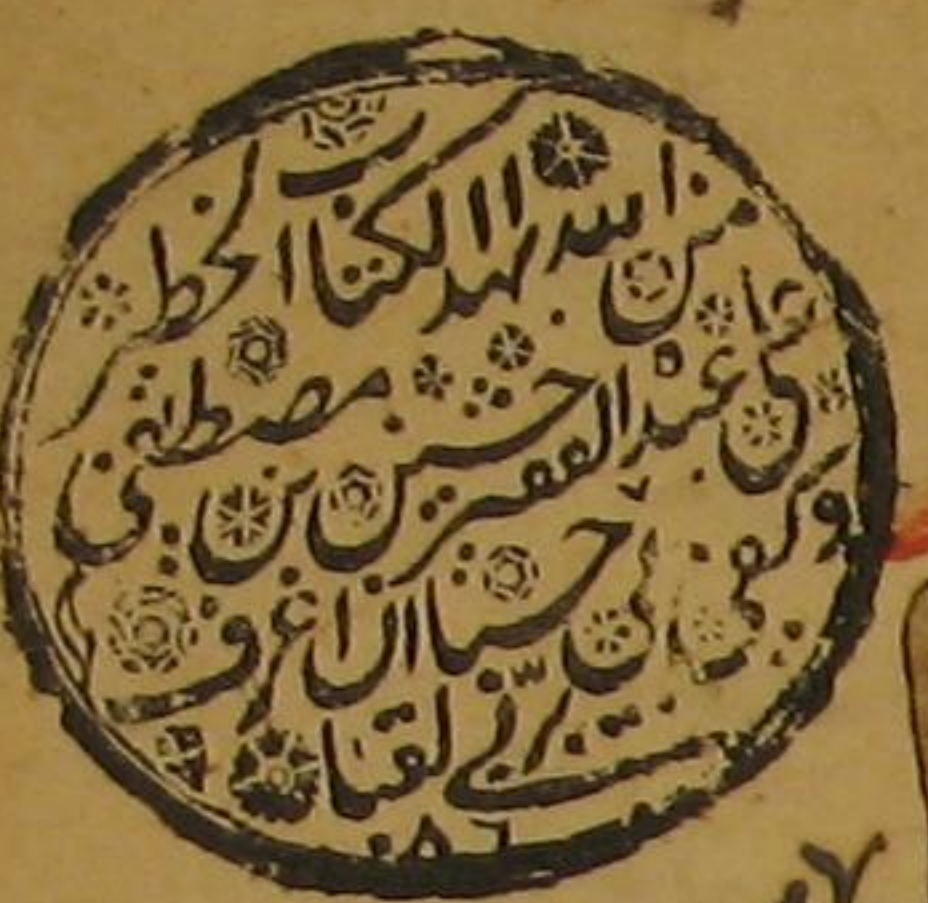 من الله بهذا الكتاب الخطير
على عبده الفقير حسين بن مصطفى
وكفى لي حسبا ان اعرف
لقبا